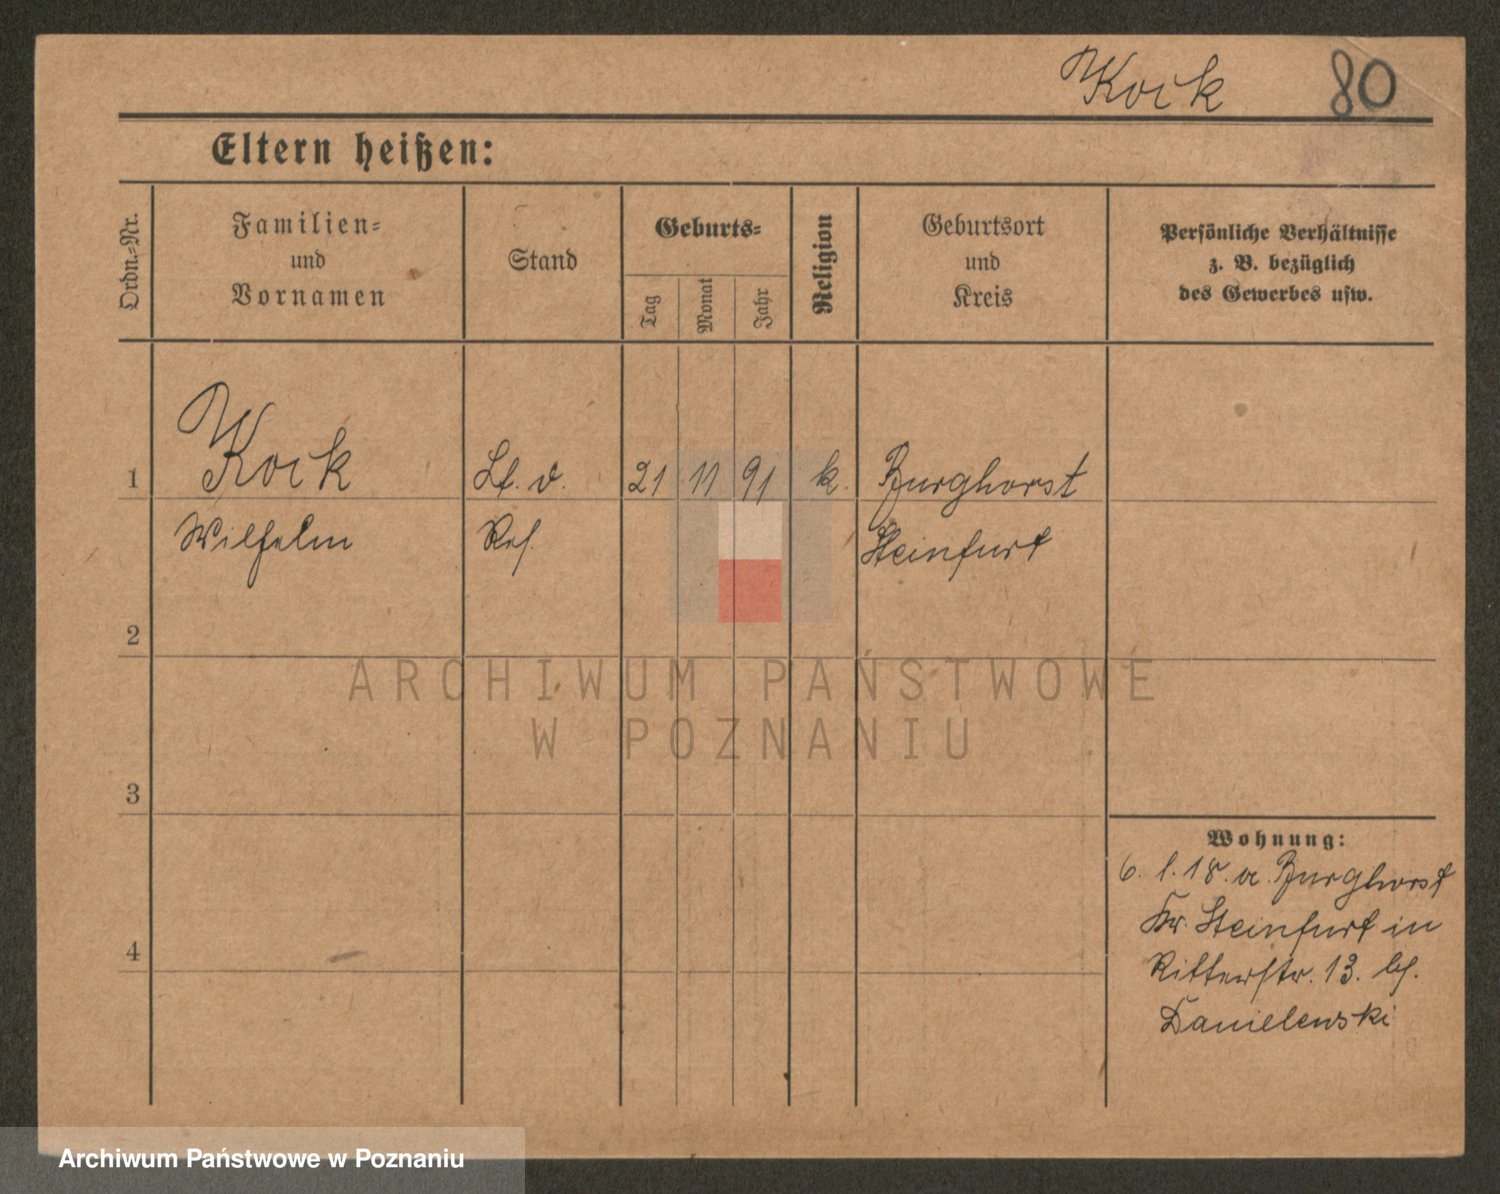 Kock 80
Eltern heißen:
Ordn.-Nr.
Familien-
und
Vornamen
Stand
Geburts-
Tag
Monat
Jahr
Religion
Geburtsort
und
Kreis
Persönliche Verhältnisse
z. B. bezüglich
des Gewerbes usw.
1 Kock Lt. d. 21 11 91 k. Burghorst
Wilhelm Res. Steinfurt
2
ARCHIWUM PAŃSTWOWE
W POZNANIU
3
Wohnung:
6. 1. 18. a. Burghorst
Kr. Steinfurt in
Ritterstr. 13. bei
Danielewski
4
Archiwum Państwowe w Poznaniu